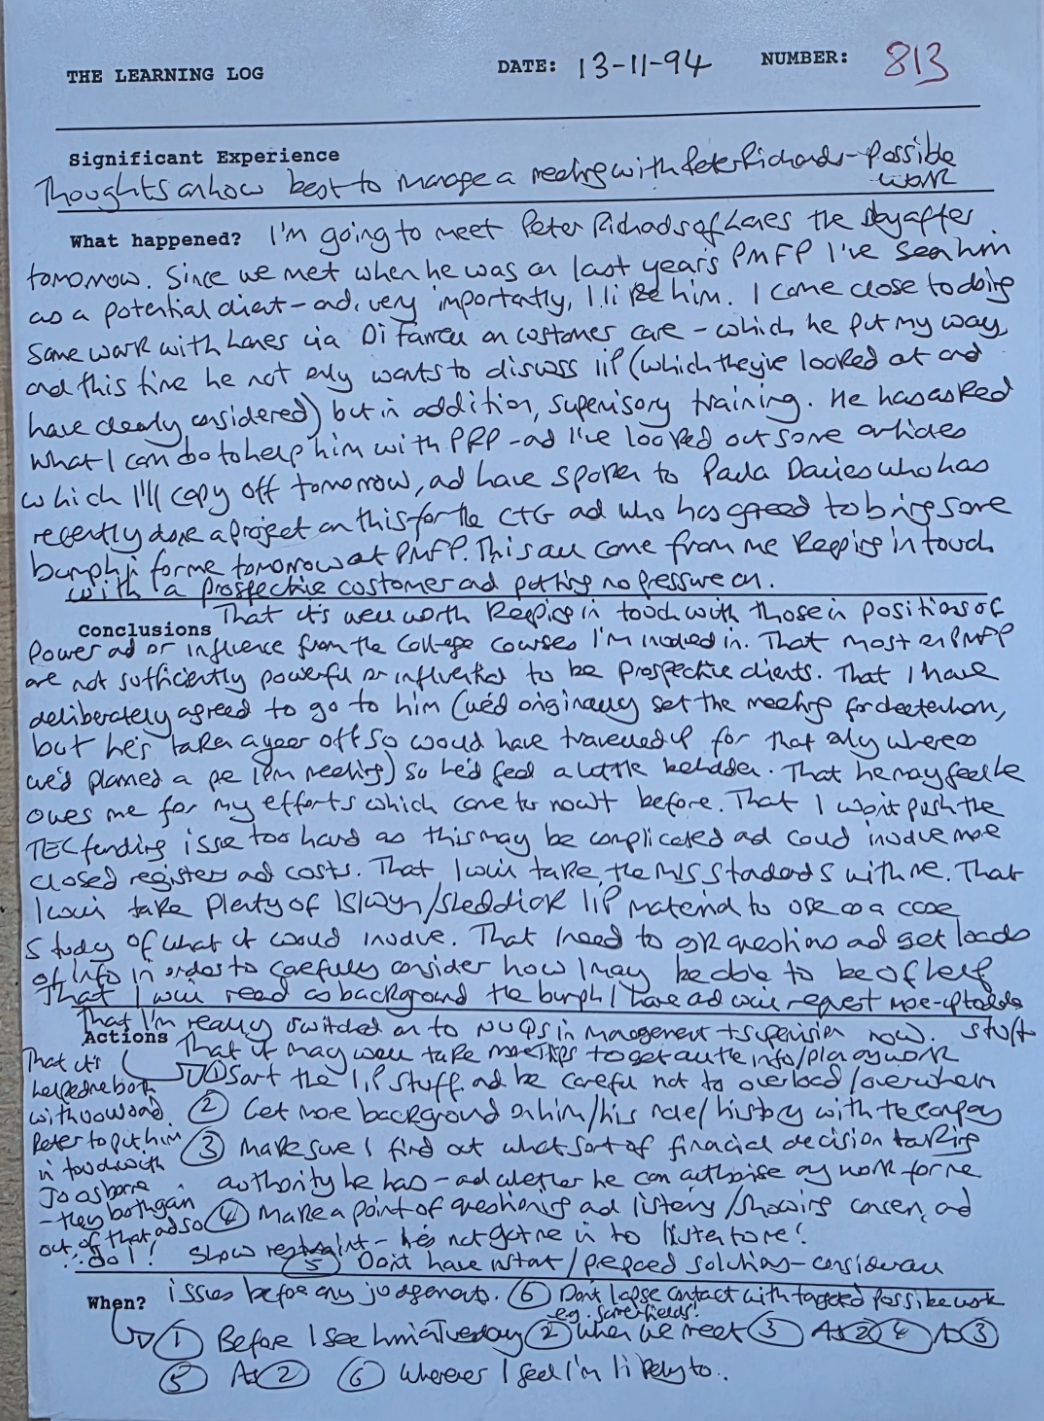 THE LEARNING LOG DATE: 13-11-94 NUMBER: 813
Significant Experience
Thoughts on how best to manage a meeting with Peter Richards - Possible
work
What happened? I'm going to meet Peter Richards of the day after
tomorrow. Since we met when he was on last year's PMFP I've seen him
as a potential client - and, very importantly, I like him. I came close to doing
some work with via Di on customer care - which he put my way
and this time he not only wants to discuss IIP (which they've looked at and
have clearly considered) but in addition, supervisory training. He has asked
what I can do to help him with PRP - and I've looked out some articles
which I'll copy off tomorrow, and have spoken to Paula Davies who has
recently done a project on this for the CTG and who has agreed to bring some
bumph in for me tomorrow at PMFP. This all came from me keeping in touch
with a prospective customer and putting no pressure on.
Conclusions That it's well worth keeping in touch with those in positions of
power and or influence from the College courses I'm involved in. That most on PMFP
are not sufficiently powerful or influential to be prospective clients. That I have
deliberately agreed to go to him (we'd originally set the meeting for Cheltenham,
but he's taken a year off so would have travelled up for that only whereas
we'd planned a pre 1pm meeting) so he'd feel a little beholden. That he may feel he
owes me for my efforts which came to nowt before. That I won't push the
TEC funding issue too hard as this may be complicated and could involve more
closed registers and costs. That I will take the Standards with me. That
I will take plenty of Islwyn/ IIP material to use as a case
study of what it would involve. That I need to ask questions and get loads
of info in order to carefully consider how I may be able to be of help
That I will read as background the bumph I have and will request more up to date
stuff
That I'm really switched on to NVQs in management + supervision now.
Actions That it may well take meetings to get all the info/play any work
That it's
helped me both
with
Peter to put him
in touch with
Jo Osborne
- they both gain
out of that and so
∴ do I!
① Sort the IIP stuff and be careful not to overload/overwhelm
② Get more background on him/his role/history with the company
③ Make sure I find out what sort of financial decision taking
authority he has - and whether he can authorise any work for me
④ Make a point of questioning and listening/showing concern, and
show restraint - he's not got me in to listen to me!
⑤ Don't have instant/prepared solutions - consider all
issues before any judgements. ⑥ Don't lapse contact with targeted possible work
e.g.
When? ① Before I see him on Tuesday ② When we meet ③ As ② ④ As ③
⑤ As ② ⑥ Whenever I feel I'm likely to..